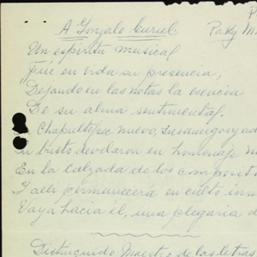 A Gonzalo Curiel
Pa
Un espíritu musical
Fué en vida su presencia,
Dejando en las notas la esencia
De su alma sentimental.
Chapultepec nuevo, sus amigos y
un busto develaron en homenaje
En la calzada de los
Y allí permanecerá en culto
Vaya hacia él, una plegaria
Distinguido Maestro de las letras